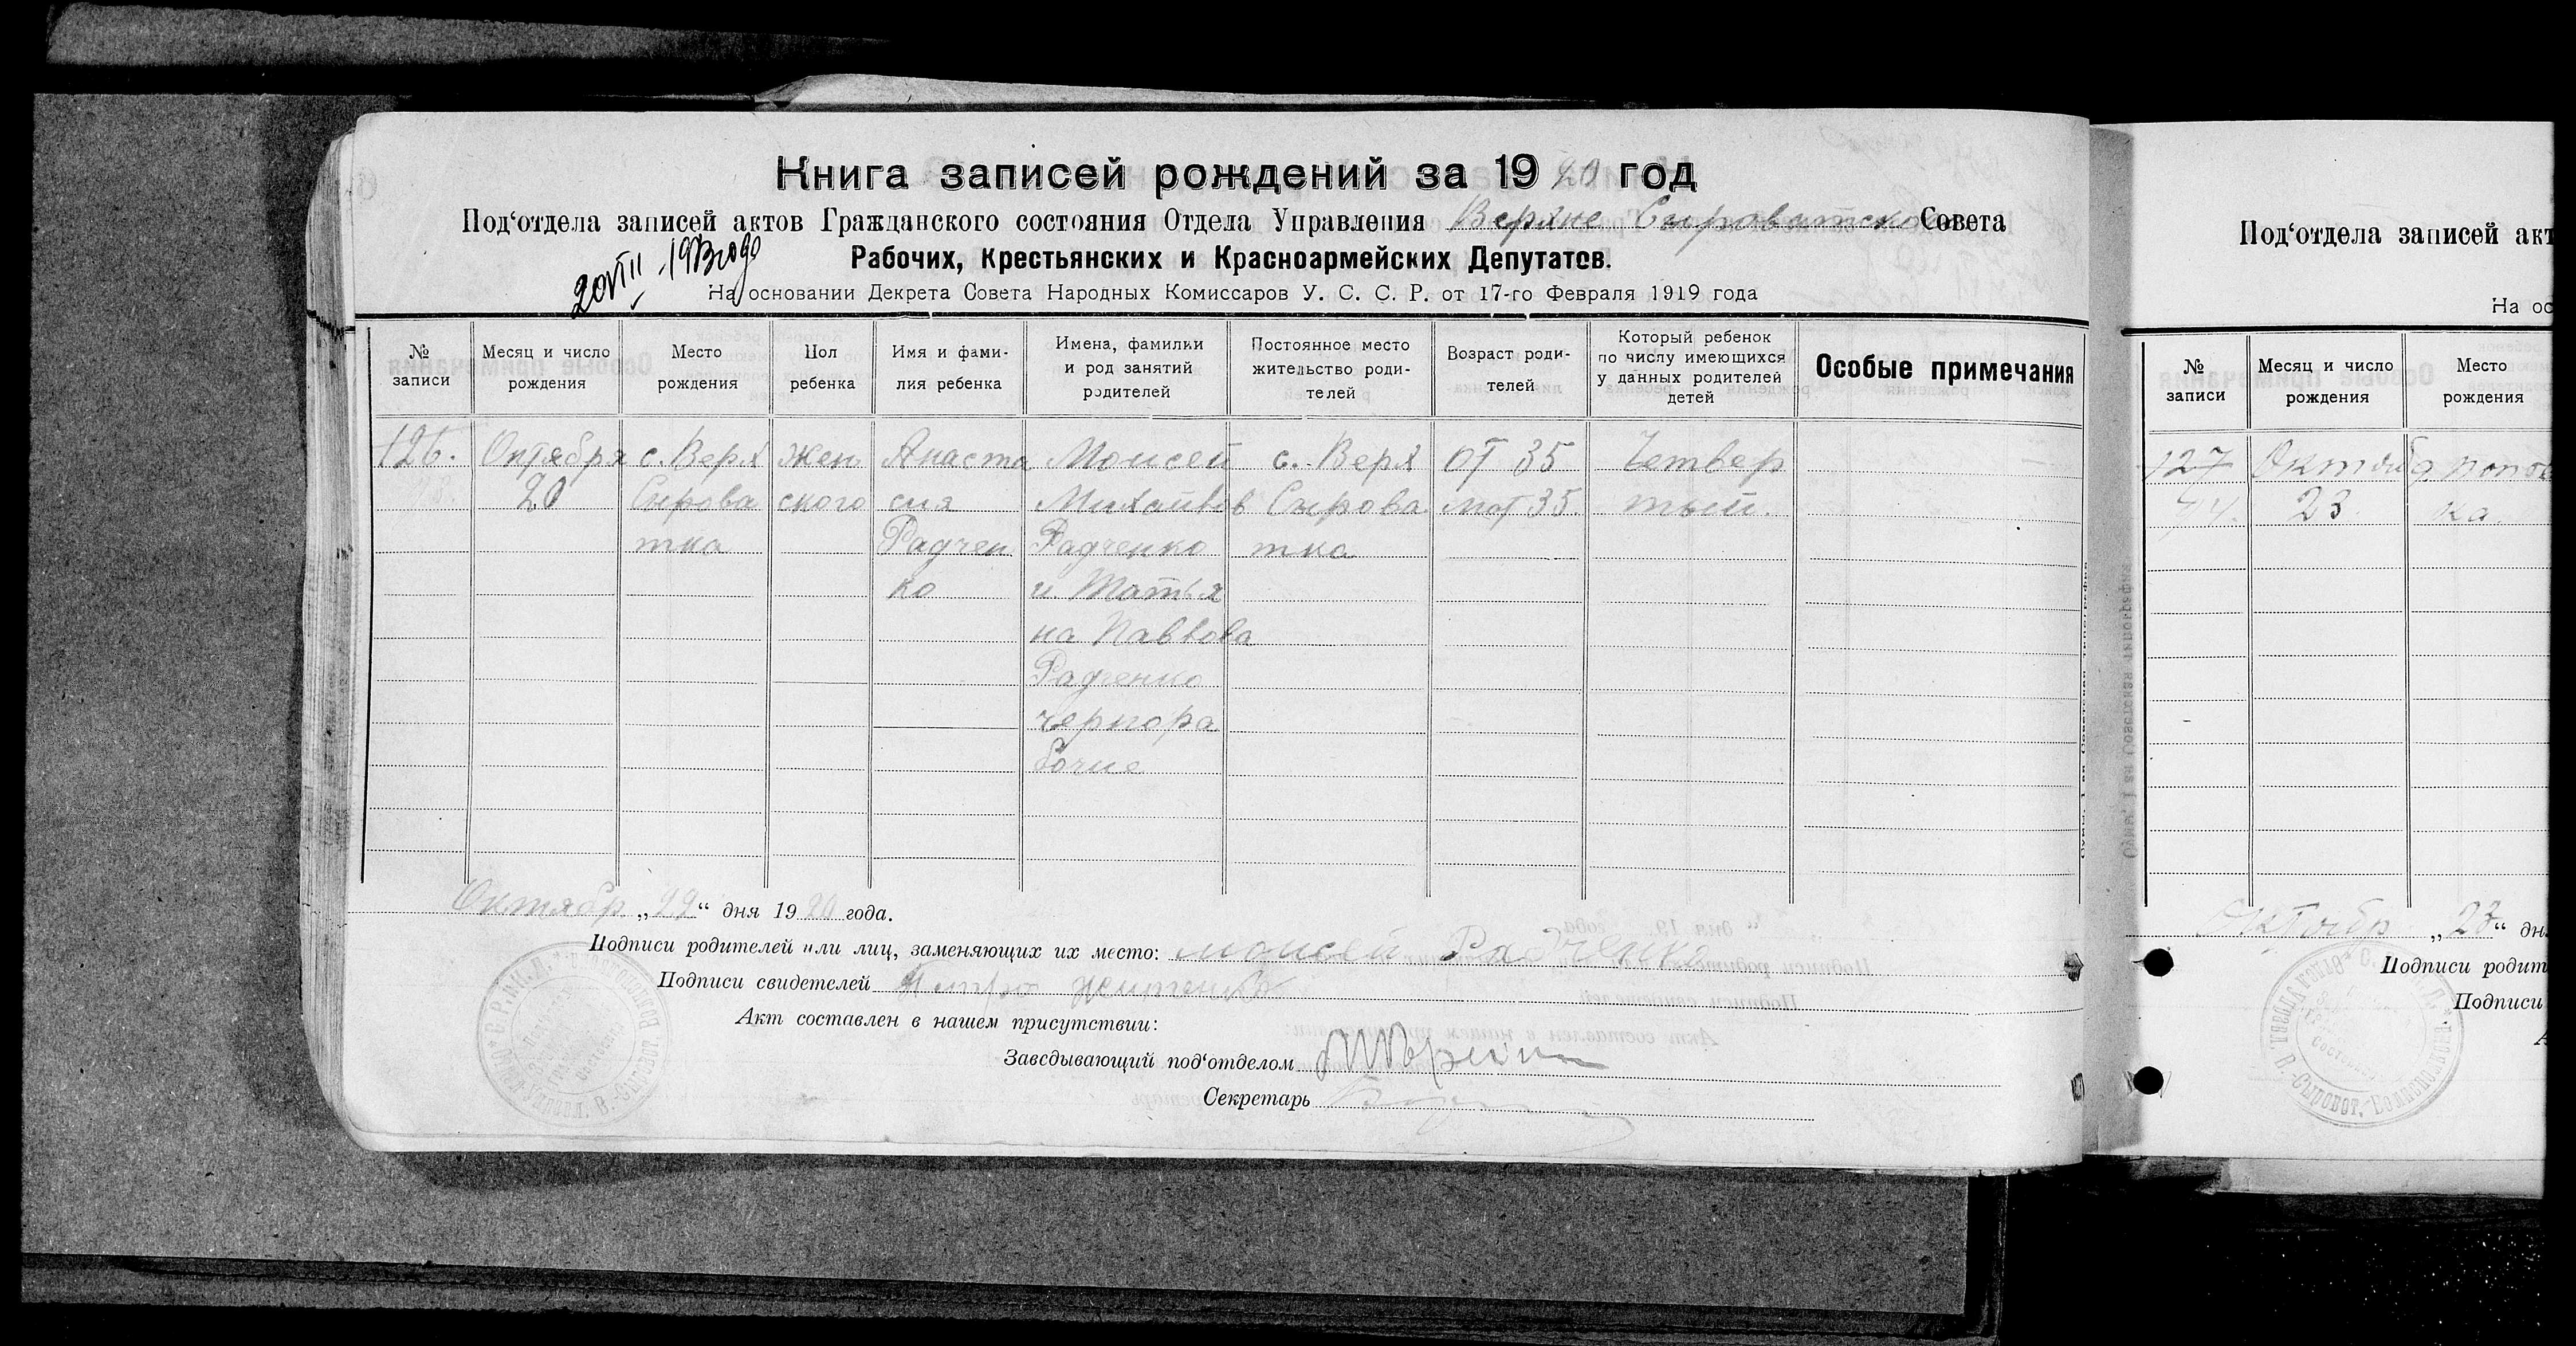 Книга записей рождений за 1920 год
Под‘отдела записей актов Гражданского состояния Отдела Управления Верхне Сыроватско Совета
Рабочих, Крестьянских и Красноармейских Депутатов.
На основании Декрета Совета Народных Комиссаров У. С. С. Р. от 17-го Февраля 1919 года
№ записи
Месяц и число рождения
Место рождения
Пол ребенка
Имя и фами-
лия ребенка
Имена, фамилии
и род занятий
родителей
Постоянное место
жительство роди-
телей
Возраст роди-
телей
Который ребенок
по числу имеющихся
у данных родителей
детей
Особые примечания
126. Октября с. Верх жен Анаста Моисей с. Верх от 35 Четвер
20 Сырова ского сия Михайлов Сырова мат 35. тый.
тка Радчен Радченко тка
ко и Татья
на Павлова
Радченко
чернора
бочие
Октябр „29“ дня 1920 года.
Подписи родителей или лиц, заменяющих их место: моисей Радченко
Подписи свидетелей
Акт составлен в нашем присутствии:
Заведывающий под‘отделом
Секретарь
Под‘отдела записей акт
На ос
№ записи
Месяц и число рождения
Место рождения
127 Октяб
23 ка.
„23“ дн
Подписи родит
Подписи